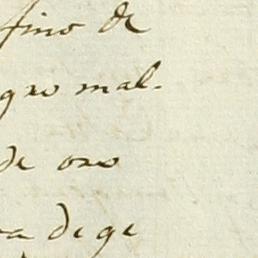 fino de
gro mal-
de oro
ra de ge